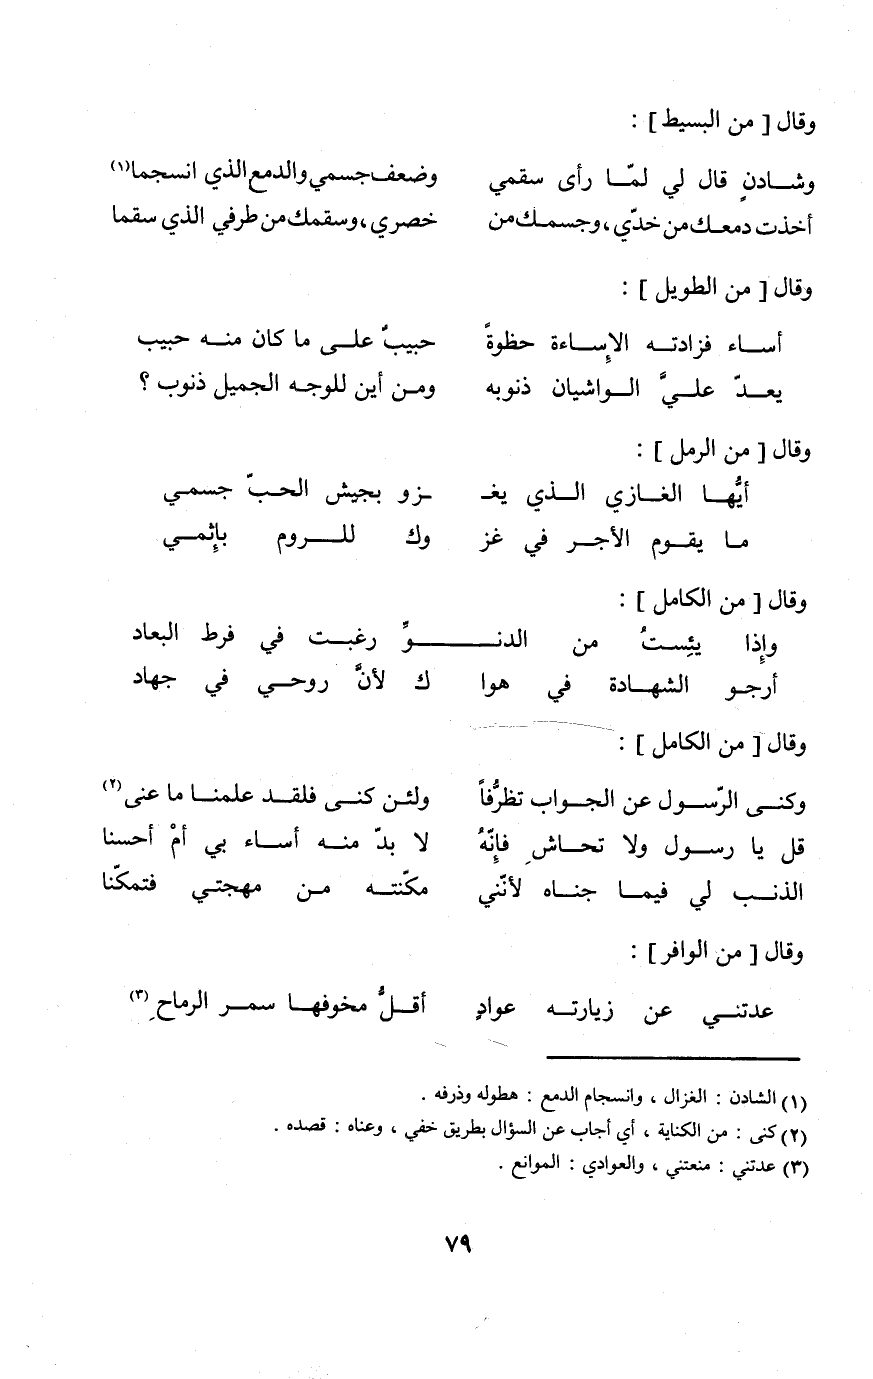 وقال [ من البسيط ] :
وشـــادنٍ قال لي لمّـــا رأى سقمي وضعف جسمي والدمع الذي انسجما(١)
أخذت دمعـك من خدّي ، وجسمـك من خصري ، وسقمك من طرفي الذي سقما
وقال [ من الطويل ] :
أســـاء فزادتـــه الإساءة حظوةً حبيبٌ على ما كان منـــه حبيب
يعـــدّ علـــيَّ الـــواشيان ذنوبه ومـن أين للوجـه الجميل ذنوب ؟
وقال [ من الرمل ] :
أيُّهـــا الغـــازي الـــذي يغـ ـزو بجيش الحبّ جسمـي
مـا يقـوم الأجـر في غز وك للـــروم بإثمـي
وقال [ من الكامل ] :
وإذا يئِستُ من الدنـــوِّ رغبت في فرط البعاد
أرجـو الشهـادة في هوا ك لأنَّ روحـي في جهاد
وقال [ من الكامل ] :
وكنـى الرّسـول عن الجـواب تظرُّفاً ولئـن كنـى فلقـد علمنـا ما عنى(٢)
قل يا رسـول ولا تحـاشِ فإنّهُ لا بدّ منـه أسـاء بي أمْ أحسنا
الذنـب لي فيمـا جنـاه لأنّني مكّنتـه مـن مهجتـي فتمكّنا
وقال [ من الوافر ] :
عدتنـي عن زيارتـه عوادٍ أقـلُّ مخوفهـا سمـر الرماحِ(٣)
(١) الشادن : الغزال ، وانسجام الدمع : هطوله وذرفه .
(٢) كنى : من الكناية ، أي أجاب عن السؤال بطريق خفي ، وعناه : قصده .
(٣) عدتني : منعتني ، والعوادي : الموانع .
٧٩